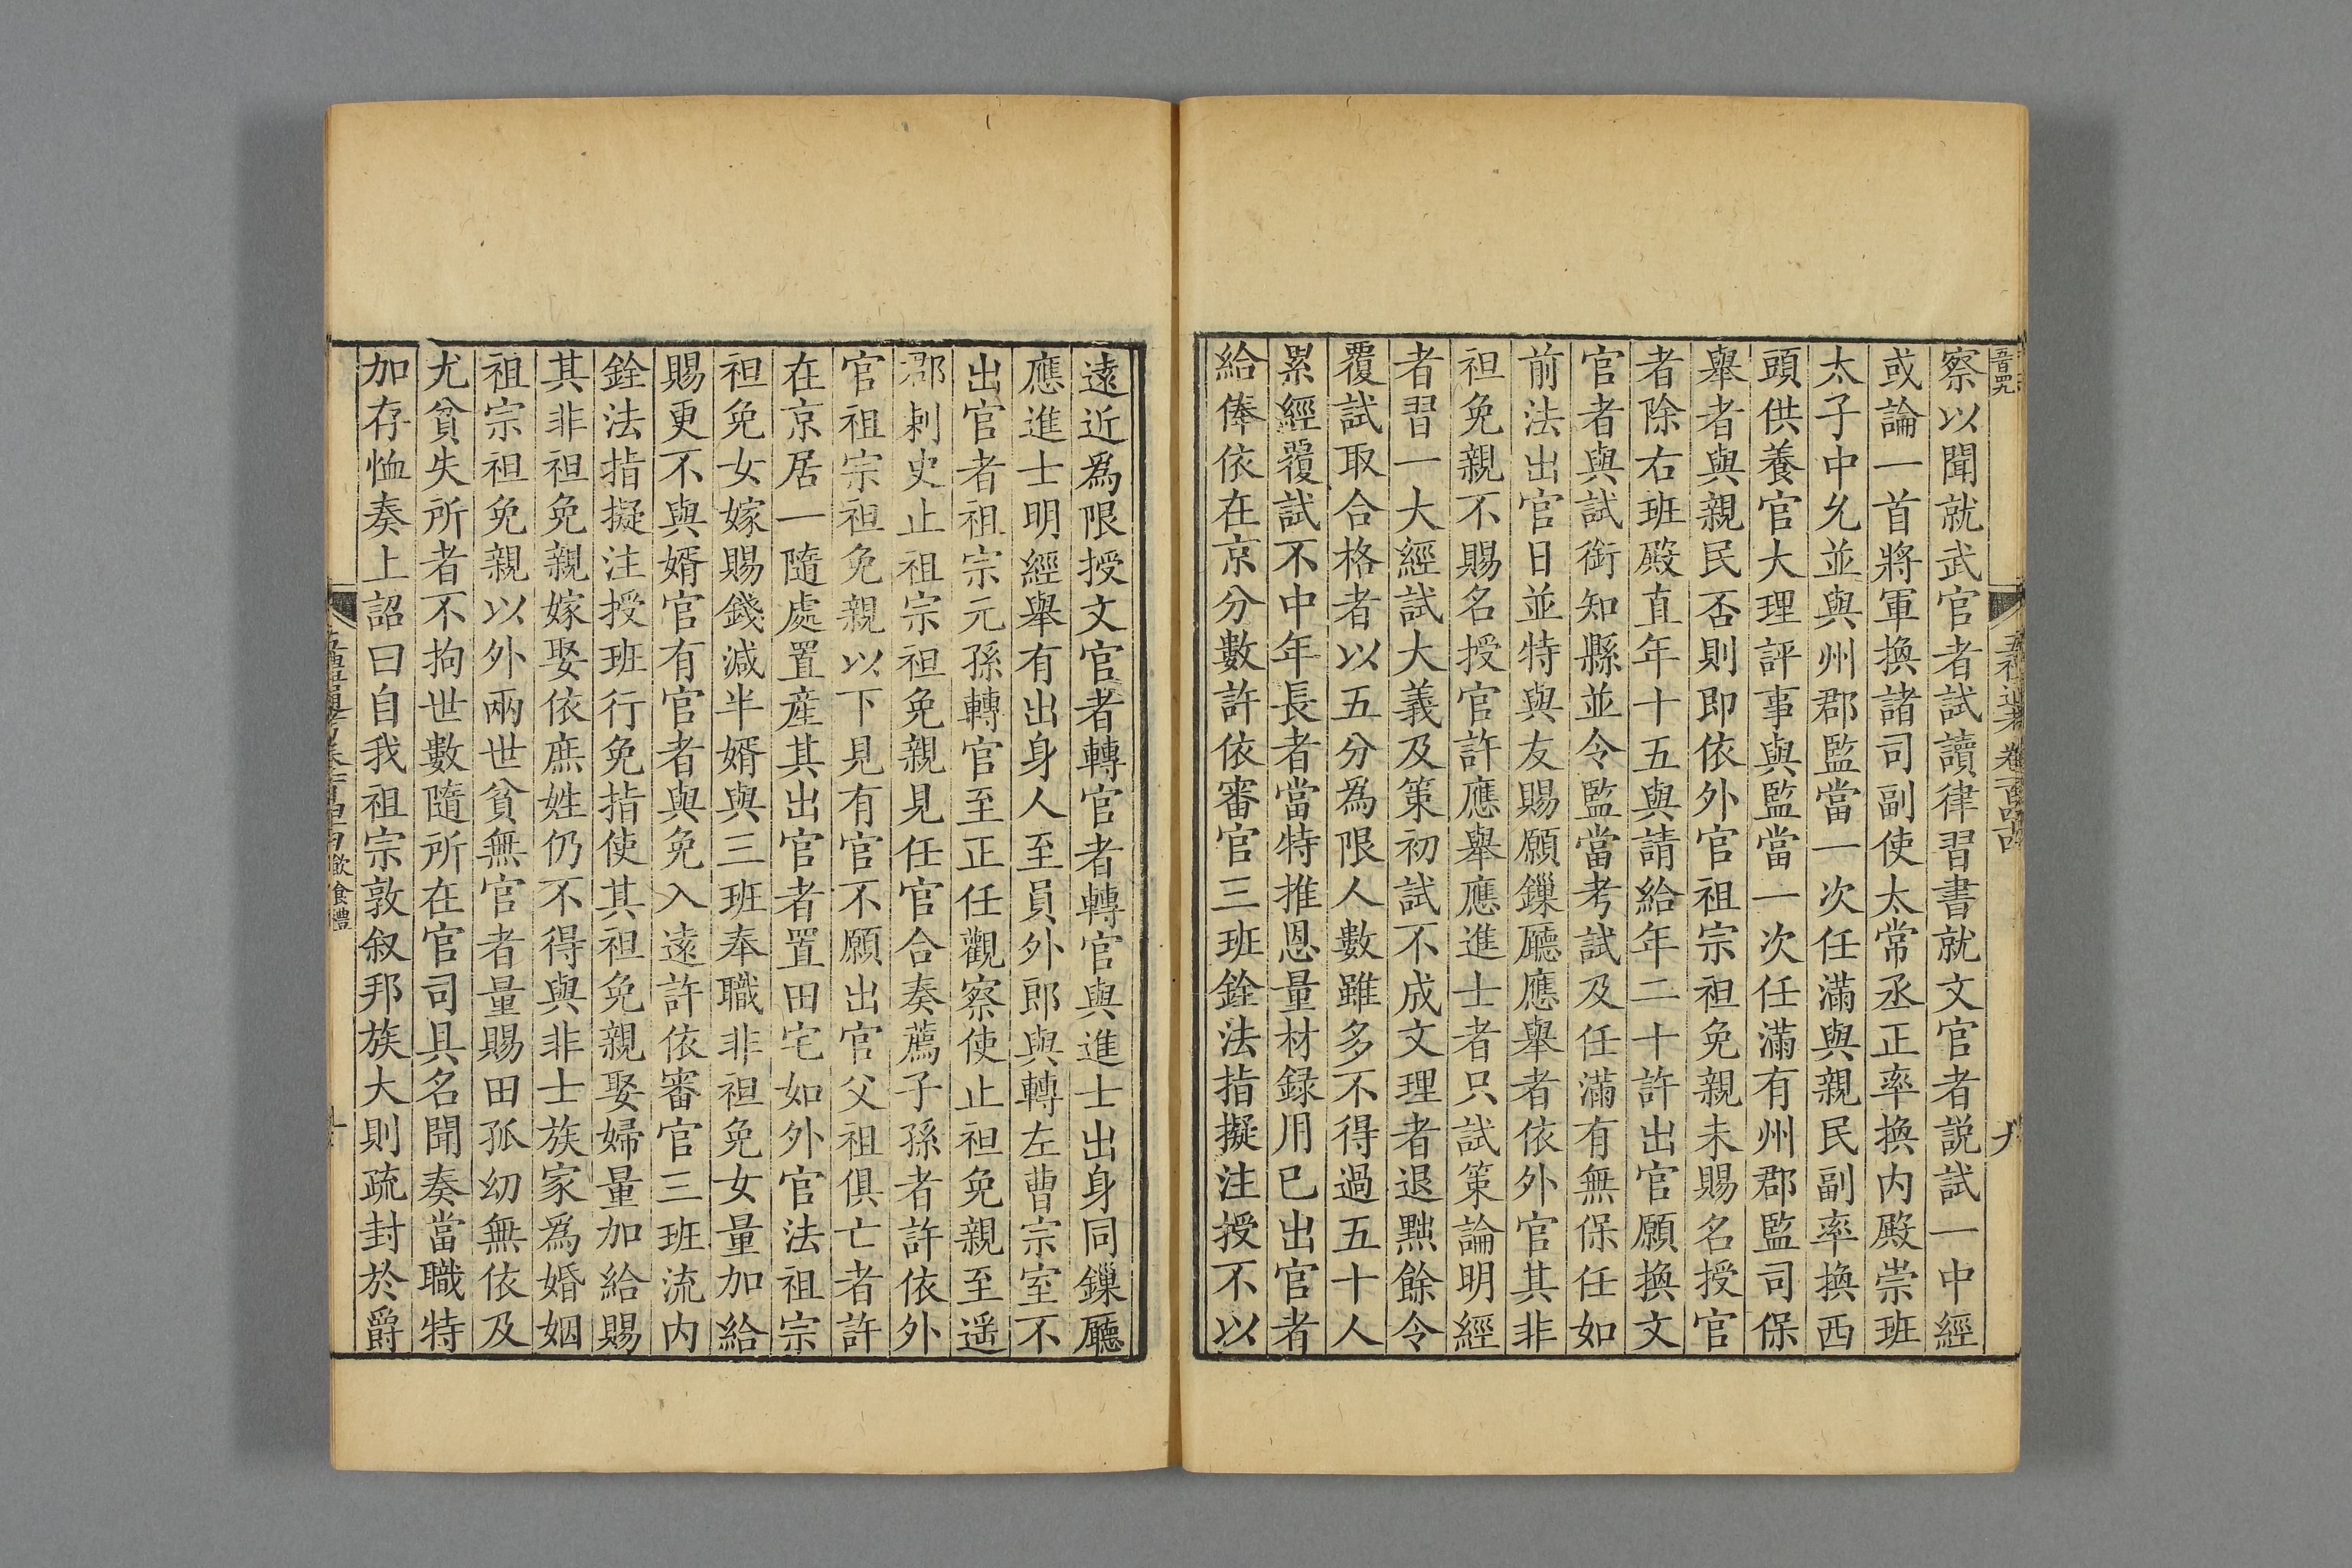 察以聞就武官者試讀律習書就文官者説試一中經
或論一首將軍換諸司副使太常丞正率換内殿崇班
太子中允並與州郡監當一次任滿與親民副率換西
頭供養官大理評事與監當一次任滿有州郡監司保
舉者與親民否則即依外官祖宗袒免親未賜名授官
者除右班殿直年十五與請給年二十許出官願換文
官者與試銜知縣並令監當考試及任滿有無保任如
前法出官日並特與友賜願鏁廳應舉者依外官其非
袒免親不賜名授官許應舉應進士者只試策論明經
者習一大經試大義及策初試不成文理者退黜餘令
覆試取合格者以五分爲限人數雖多不得過五十人
累經覆試不中年長者當特推恩量材録用已出官者
給俸依在京分數許依審官三班銓法指擬注授不以
遠近爲限授文官者轉官者轉官與進士出身同鏁廳
應進士明經舉有出身人至員外郎與轉左曹宗室不
出官者祖宗元孫轉官至正任觀察使止袒免親至遥
郡刺史止祖宗袒免親見任官合奏薦子孫者許依外
官祖宗袒免親以下見有官不願出官父祖俱亡者許
在京居一隨處置産其出官者置田宅如外官法祖宗
袒免女嫁賜錢減半婿與三班奉職非袒免女量加給
賜更不與婿官有官者與免入遠許依審官三班流内
銓法指擬注授班行免指使其袒免親娶婦量加給賜
其非袒免親嫁娶依庶姓仍不得與非士族家爲婚姻
祖宗袒免親以外兩世貧無官者量賜田孤幼無依及
尤貧失所者不拘世數隨所在官司具名聞奏當職特
加存恤奏上詔曰自我祖宗敦叙邦族大則疏封於爵
飲食禮